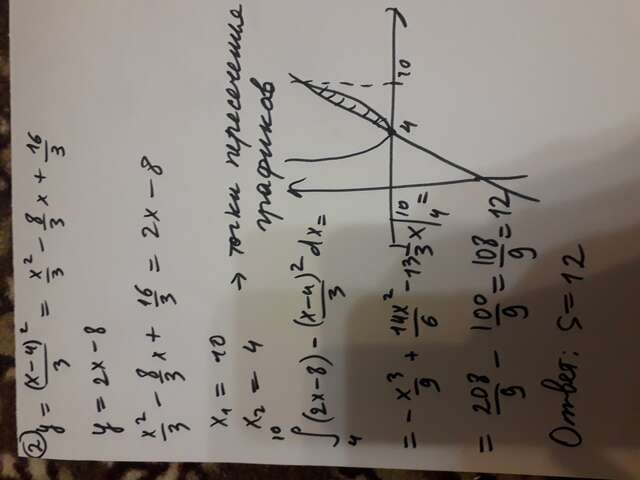 ② y = (x-4)²/3 = x²/3 - 8/3 x + 16/3
y = 2x - 8
x²/3 - 8/3 x + 16/3 = 2x - 8
x₁ = 10
x₂ = 4
→ точки пересечения
графиков
∫₄¹⁰ (2x-8) - (x-4)²/3 dx =
= -x³/9 + 14x²/6 - 13 1/3 x |₄¹⁰ =
= 208/9 - 100/9 = 108/9 = 12
Ответ: S = 12
4
10